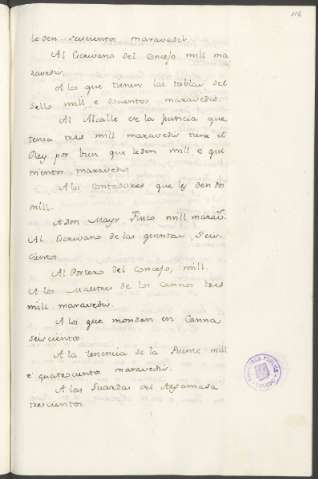 116
le den seiscientos maravedis
Al Escrivano del Concejo mill ma
ravedis.
A los que tienen las tablas del
sello mill e doscientos maravedis.
Al Alcalle de la Justicia que
tenia tres mill maravedis tiene el
Rey por bien que le den mill e qui
nientos maravedis
A los Contadores que les den dos
mill.
A don Mayr mill marav.
Al Escrivano de las Seis
cientos
Al Portero del Concejo, mill.
A los Maestros de los Cannos tres
mill maravedis.
A los que moran en Canna
seiscientos
A la tenencia de la mill
e quatrocientos maravedis.
A las Guardas del
trescientos